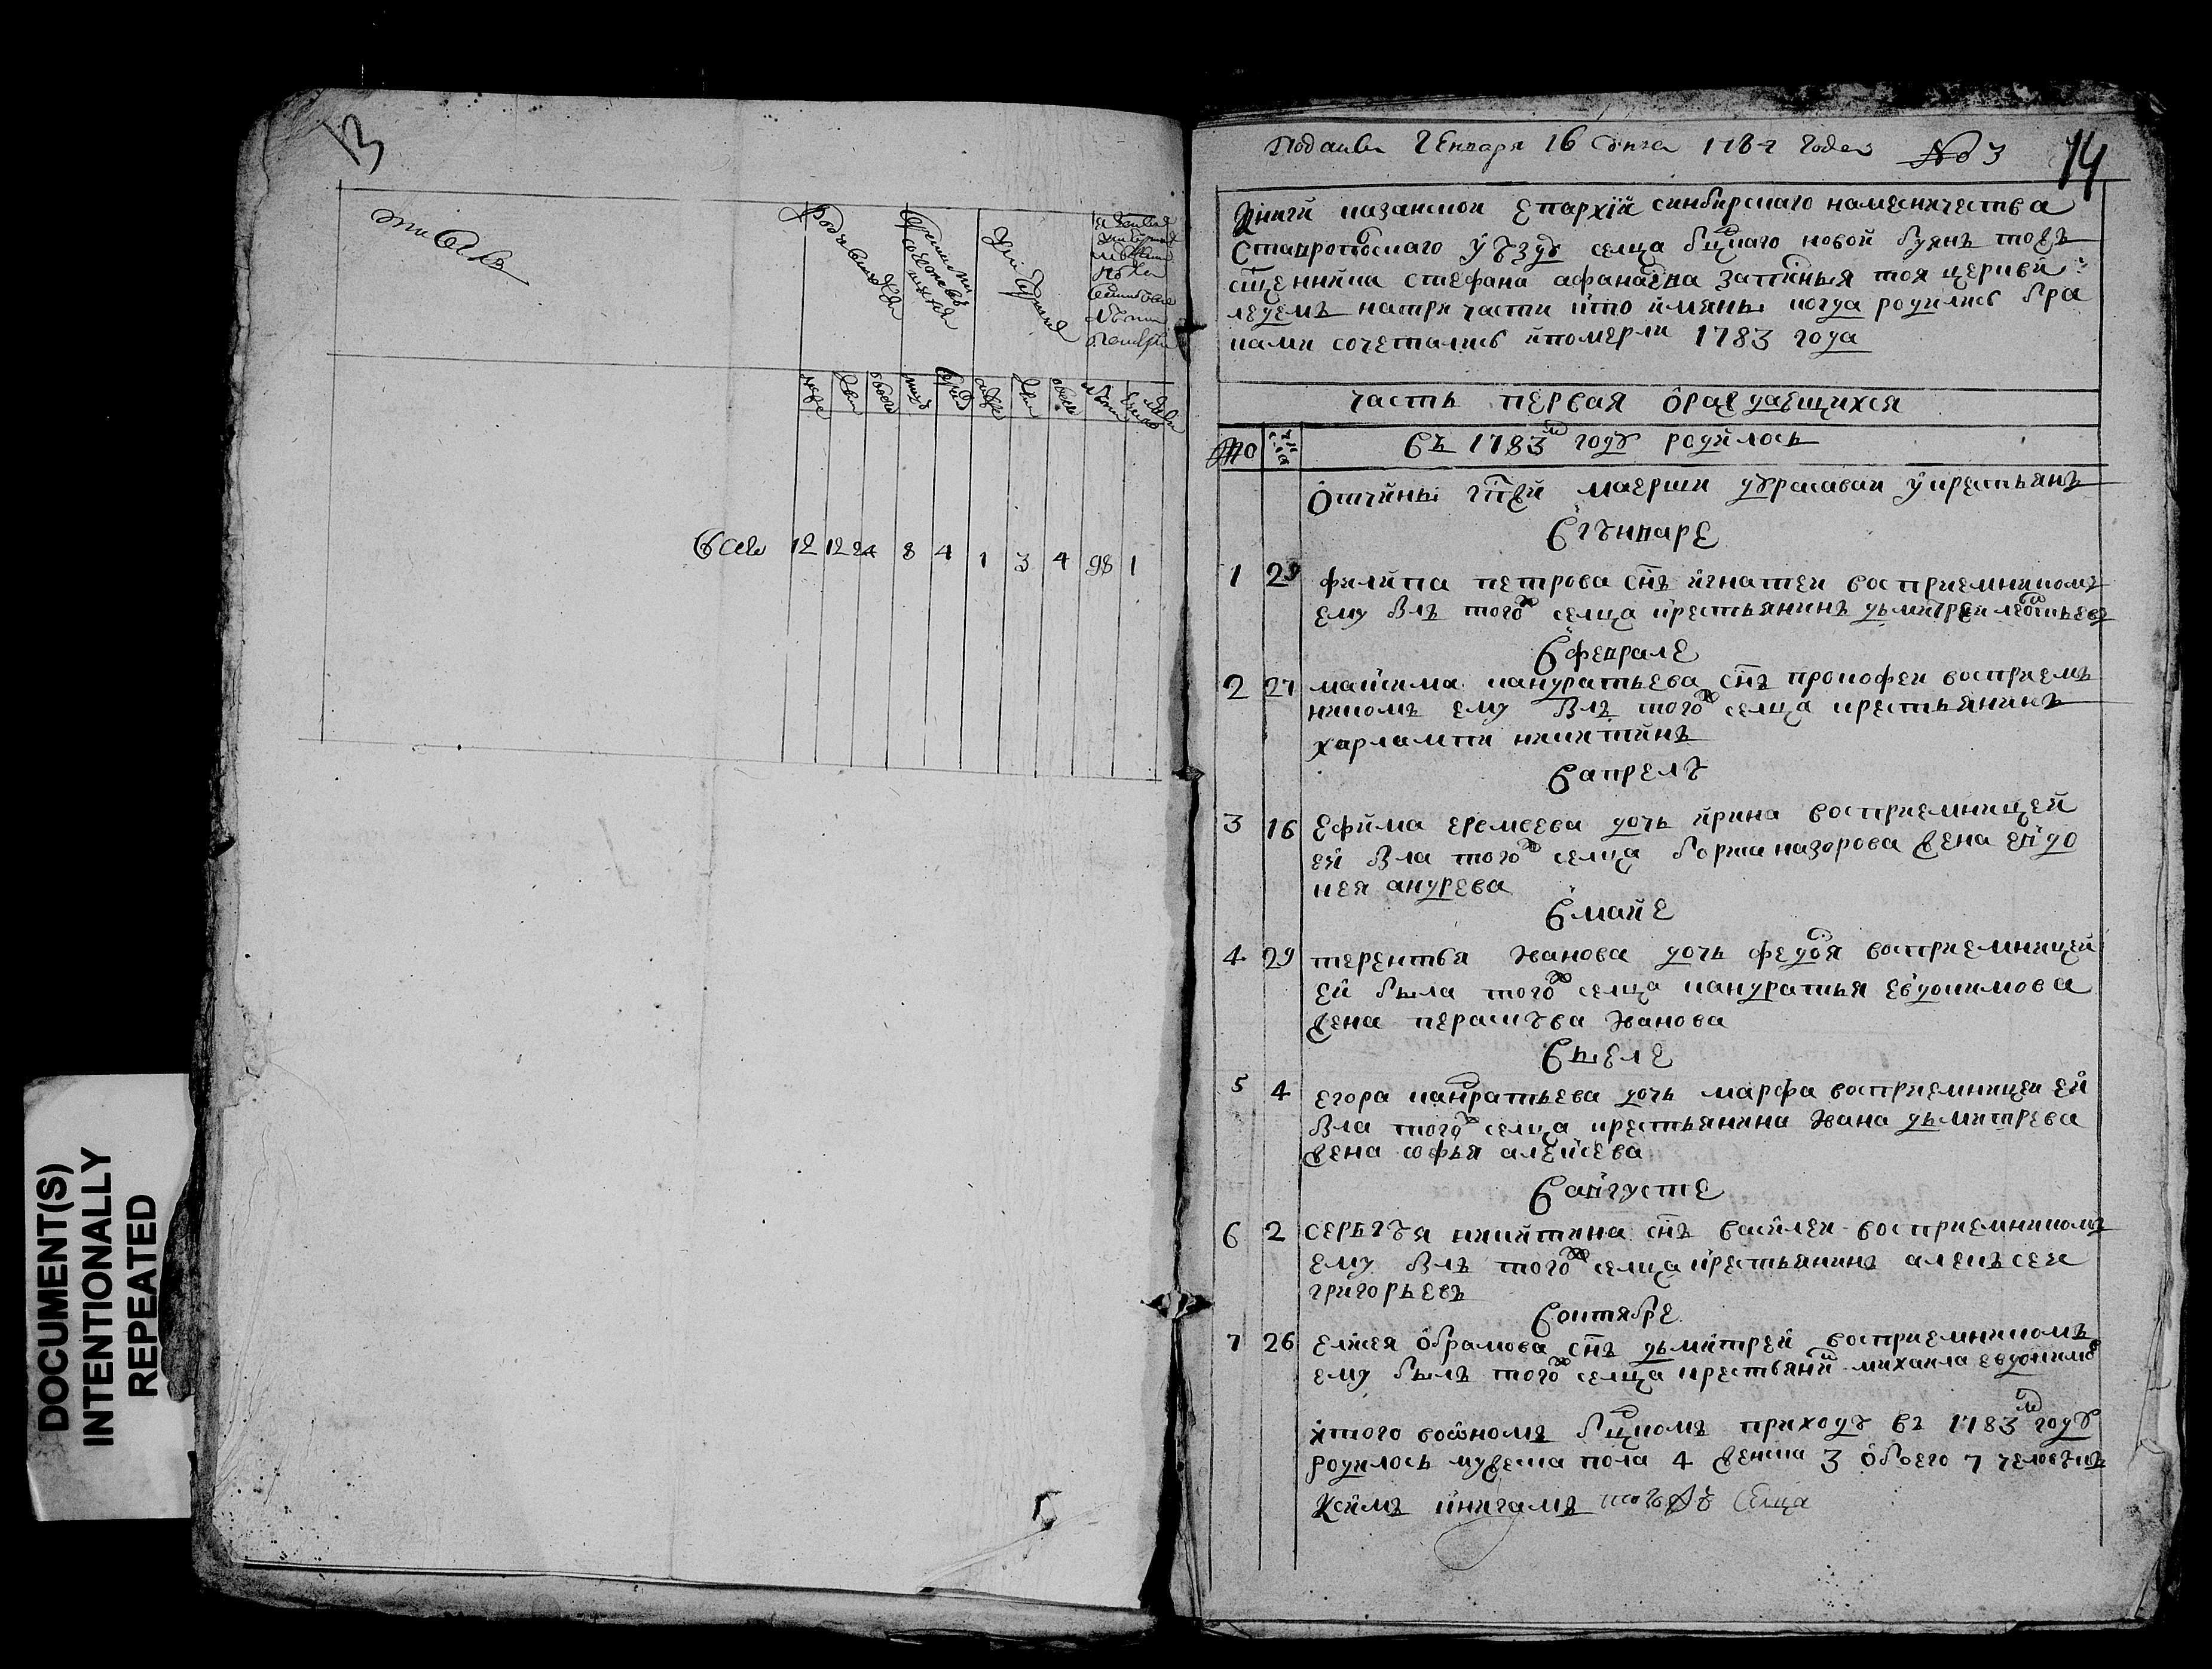 13
Родившихся
Умерших
Всего 12 12 24 8 4 1 3 4 98 1
DOCUMENT(S)
INTENTIONALLY
REPEATED
Подана Генваря 16 дня 1784 года №3 14
Книги казанской Епархїи синбирскаго намесничества
Ставропоскаго уѣзду селца бцкаго новой буянъ тожъ
сщенника стефана афанасева
лсдемъ на три части кто имяны когда родились бра
ками сочетались и померли 1783 года
часть первая о раждаещихся
№ число Въ 1783м году родилось
Отчины гпжи маерши дурасавай у крестьянъ
В генваре
1 29 филипа петрова снъ игнатеи восприемникомъ
ему былъ того ж селца крестьянинъ дьмитреи левонтьевъ
В феврале
2 27 маѯима кандратьева снъ прокофеи восприем
никомъ ему былъ того ж селца крестьянинъ
харлампи никитинъ
В апрелѣ
3 16 Ефима еремеева дочь ирина восприемницей
еи была того ж селца бориса назорова жена евдо
кея андрева
В майе
4 29 терентья иванова дочь федося восприемницей
ей была того ж селца кандратья евдокимова
жена перасковa иванова
В ыюле
5 4 егора кандратьева дочь марфа восприемницеи ей
была того ж селца крестьянина ивана дьмитрева
жена софья алеѯева
В августе
6 2 серьгѣя никитина снъ василеи восприемникомъ
ему былъ того ж селца крестьянинъ алекъсеи
григорьевъ
В октябре
7 26 елисея обрамова снъ дьмитрей восприемникомъ
ему былъ того ж селца крестьянин михаила евдокимов
итого во оном бцком приходѣ въ 1783м году
родилось мужеска пола 4 женска 3 обоего 7 человѣкъ
К сим книгамъ тогожъ селца